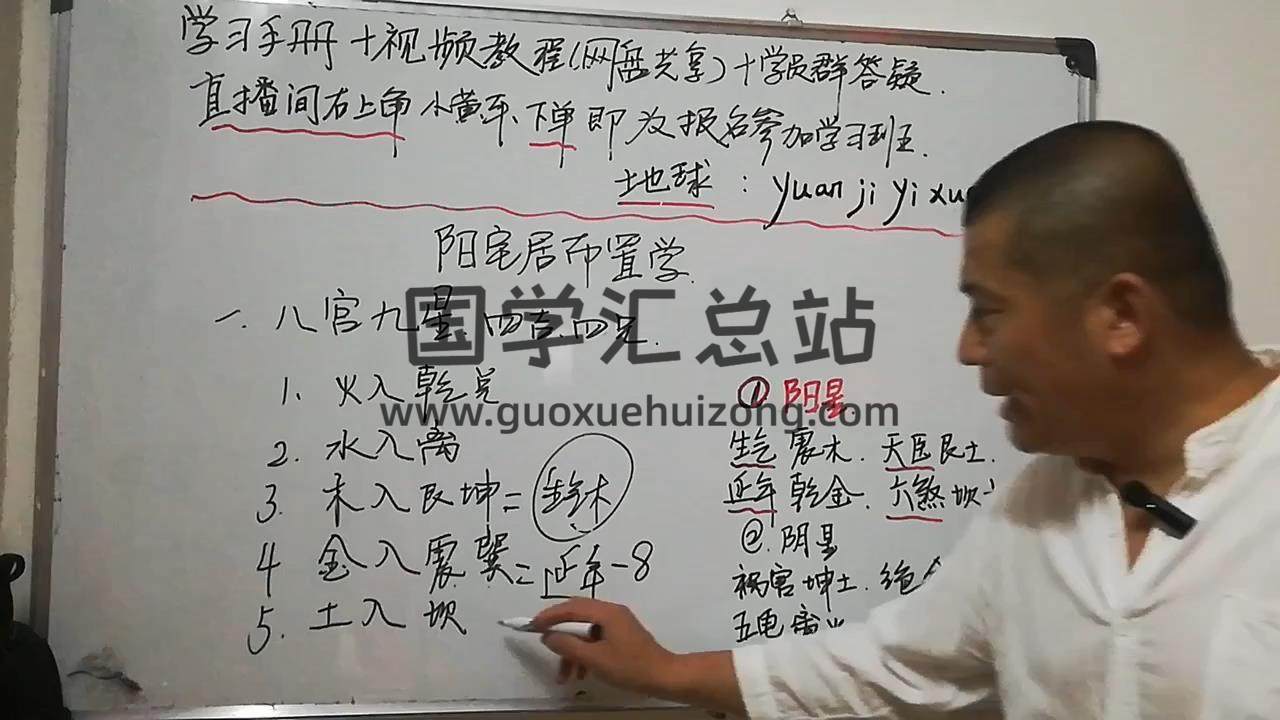 学习手册+视频教程(网盘共享)+学员群答疑.
直播间右上角小黄车、下单即为报名参加学习班.
土地球：yuan ji yi xue
阳宅居布置学.
一.八宫九星.四吉.四兄.
国学汇总站
www.guoxuehuizong.com
1. 火入乾兑
2. 水入离
3. 木入艮坤=木
4 金入震巽=延年-8
5. 土入坎
① 阳星
生气震木.天医艮土.
延年乾金.六煞坎
②.阴星
祸害坤土.绝
五鬼离火